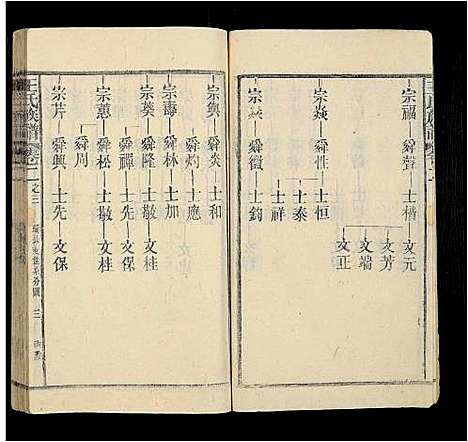 宗福—舜聲—士楷—文元
文芳
文端
文正
宗焱—舜性—士恒
士泰
士祥
宗焱—舜徵—士鈞
宗輿—舜炎—士和
舜灼—士應
宗壽—舜林—士加
宗葵—舜隆—士敬—文桂
舜禪—士先—文保
宗蕙—舜松—士敬—文桂
舜周
宗芹—舜興—士先—文保
王氏族譜
卷二之三
三